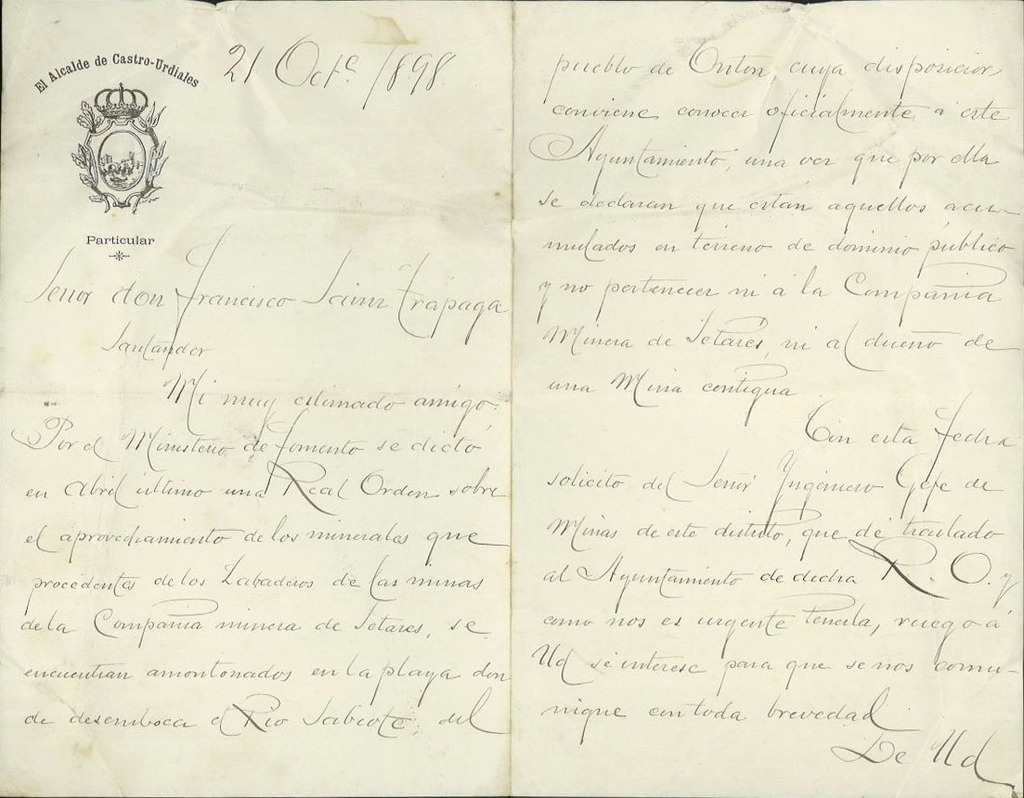 El Alcalde de Castro-Urdiales
Particular
21 Octe 1898
Señor don Francisco Sainz Trápaga
Santander
Mi muy estimado amigo:
Por el Ministerio de Fomento se dictó
en Abril último una Real Orden sobre
el aprovechamiento de los minerales que
procedentes de los Labaderos de las minas
de la Compañia minera de Setares, se
encuentran amontonados en la playa don
de desemboca el Rio Sabiote, del
pueblo de Onton, cuya disposicion
conviene conocer oficialmente á este
Ayuntamiento, una vez que por ella
se declaran que están aquellos acu-
mulados en terreno de dominio público
y no pertenecer ni á la Compañia
Minera de Setares, ni al dueño de
una Mina contigua
Con esta fecha
solicito del Señor Yngeniero Gefe de
Minas de este distrito, que dé traslado
al Ayuntamiento de dicha R. O. y
como nos es urgente tenerla, ruego á
Ud se interese para que se nos comu-
nique con toda brevedad
De Ud